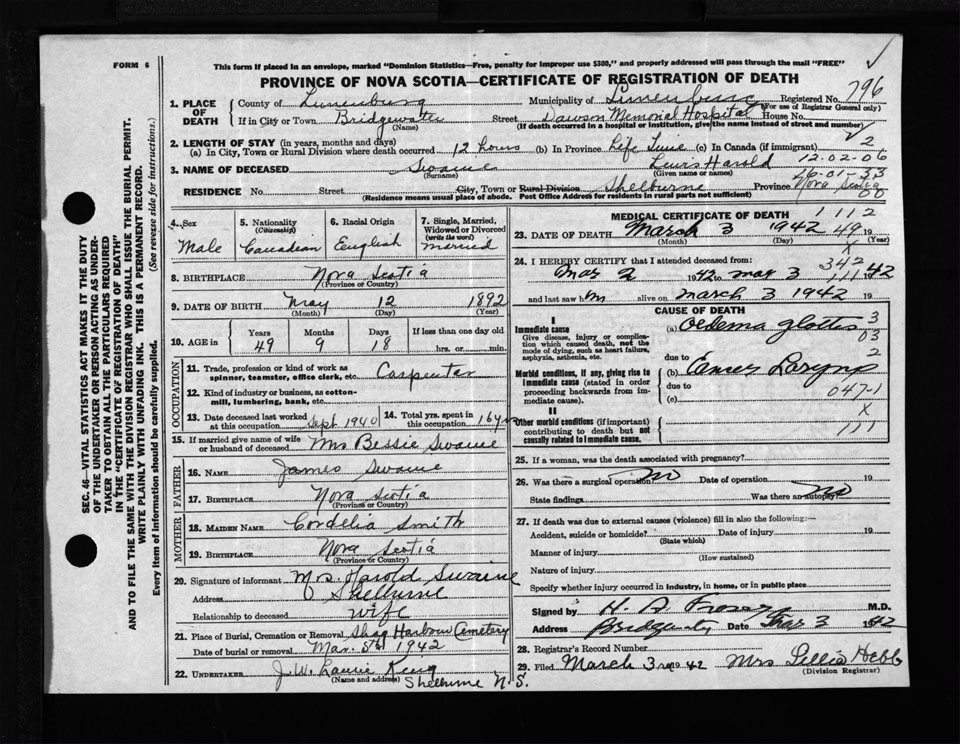 FORM 6
This form if placed in an envelope, marked "Dominion Statistics—Free, penalty for improper use $300," and properly addressed will pass through the mail "FREE"
PROVINCE OF NOVA SCOTIA—CERTIFICATE OF REGISTRATION OF DEATH
SEC. 46—VITAL STATISTICS ACT MAKES IT THE DUTY
OF THE UNDERTAKER OR PERSON ACTING AS UNDER-
TAKER TO OBTAIN ALL THE PARTICULARS REQUIRED
IN THE "CERTIFICATE OF REGISTRATION OF DEATH"
AND TO FILE THE SAME WITH THE DIVISION REGISTRAR WHO SHALL ISSUE THE BURIAL PERMIT.
WRITE PLAINLY WITH UNFADING INK. THIS IS A PERMANENT RECORD.
Every item of information should be carefully supplied. (See reverse side for instructions.)
1. PLACE OF DEATH County of Lunenburg Municipality of Lunenburg Registered No. 796
(For use of Registrar General only)
If in City or Town Bridgewater Street Dawson Memorial Hospital House No.
(Name) (If death occurred in a hospital or institution, give the name instead of street and number)
2. LENGTH OF STAY (in years, months and days) 2
(a) In City, Town or Rural Division where death occurred 12 hours (b) In Province Life Time (c) In Canada (if immigrant)
3. NAME OF DECEASED Swaine Lewis Harold 12-02-06
(Surname) (Given name or names) 26-01-33
RESIDENCE No. Street City, Town or Rural Division Shelburne Province Nova Scotia
(Residence means usual place of abode. Post Office Address for residents in rural parts not sufficient) 00
4. Sex 5. Nationality (Citizenship) 6. Racial Origin 7. Single, Married, Widowed or Divorced (write the word)
Male Canadian English married
8. BIRTHPLACE Nova Scotia
(Province or Country)
9. DATE OF BIRTH May 12 1892
(Month) (Day) (Year)
10. AGE in Years Months Days If less than one day old
49 9 18 hrs. or min.
OCCUPATION
11. Trade, profession or kind of work as spinner, teamster, office clerk, etc. Carpenter
12. Kind of industry or business, as cotton-mill, lumbering, bank, etc.
13. Date deceased last worked at this occupation Sept 1940 14. Total yrs. spent in this occupation 16 yrs
15. If married give name of wife or husband of deceased Mrs Bessie Swaine
FATHER
16. Name James Swaine
17. Birthplace Nova Scotia
(Province or Country)
MOTHER
18. Maiden Name Cordelia Smith
19. Birthplace Nova Scotia
(Province or Country)
20. Signature of informant Mrs. Harold Swaine
Address Shelburne
Relationship to deceased Wife
21. Place of Burial, Cremation or Removal Shag Harbour Cemetery
Date of burial or removal Mar. 5th 1942
22. Undertaker J. W. Laurie King
(Name and address) Shelburne N.S.
MEDICAL CERTIFICATE OF DEATH 1 1 1 2
23. DATE OF DEATH March 3 1942 49 19
(Month) (Day) (Year)
X
24. I HEREBY CERTIFY that I attended deceased from: 342
Mar 2 1942 to Mar 3 111 42
and last saw him alive on March 3 1942 19
CAUSE OF DEATH
I
Immediate cause
Give disease, injury or complication which caused death, not the mode of dying, such as heart failure, asphyxia, asthenia, etc.
(a) Oedema glottis 3
03
due to 2
Morbid conditions, if any, giving rise to immediate cause (stated in order proceeding backwards from immediate cause).
(b) Cancer Larynx
due to 047-1
(c)
X
II
Other morbid conditions (if important) contributing to death but not causally related to immediate cause.
111
25. If a woman, was the death associated with pregnancy?
26. Was there a surgical operation no Date of operation 19
State findings Was there an autopsy? no
27. If death was due to external causes (violence) fill in also the following:—
Accident, suicide or homicide? Date of injury 19
(State which)
Manner of injury
(How sustained)
Nature of injury
Specify whether injury occurred in industry, in home, or in public place
Signed by H. A. M.D.
Address Bridgewater Date Mar 3 1942
28. Registrar's Record Number
29. Filed March 3rd 1942 Mrs Lillis Hebb
(Division Registrar)